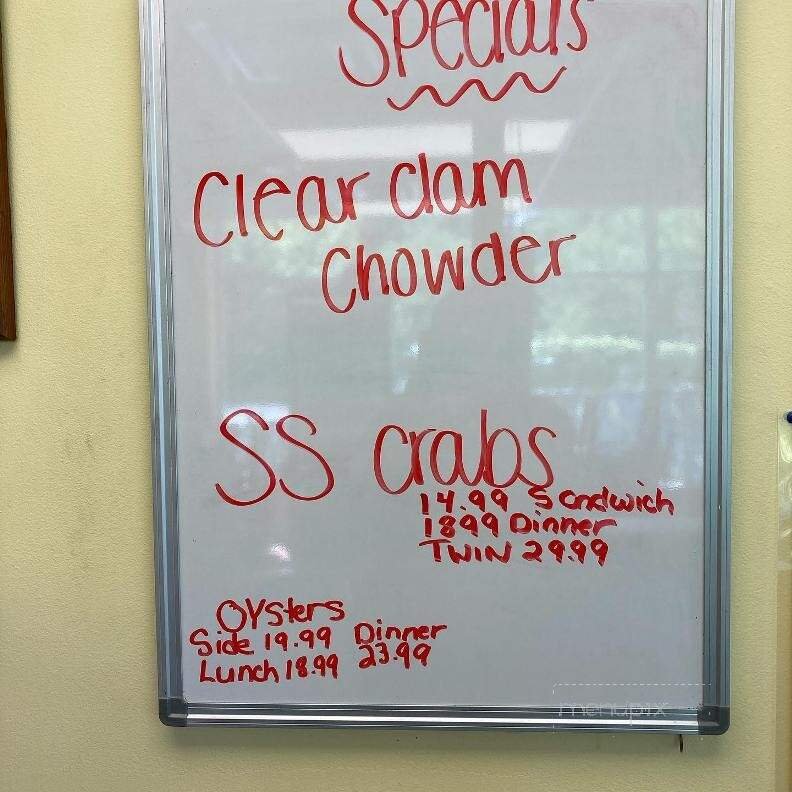 Specials
Clear clam
Chowder
SS crabs
14.99 Sandwich
1899 Dinner
TWIN 29.99
OYsters
Side 19.99 Dinner
Lunch 18.99 23.99
menupix